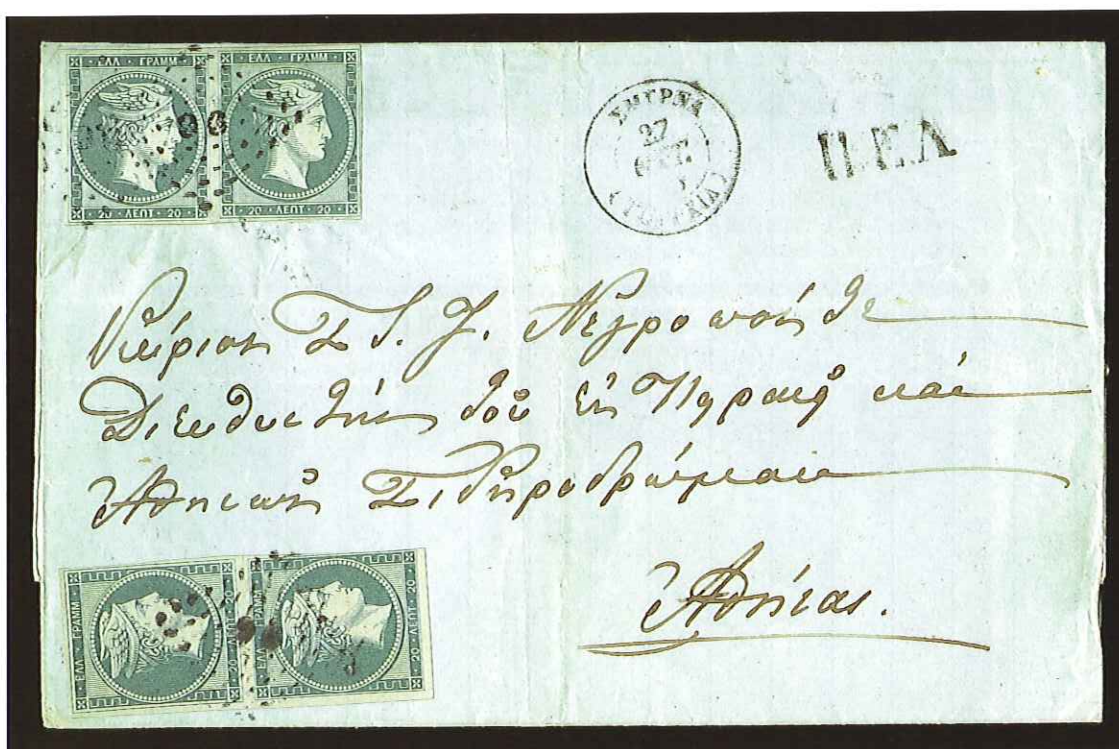 ΕΛΛ ΓΡΑΜΜ ΕΛΛ ΓΡΑΜΜ
20 ΛΕΠΤ 20 20 ΛΕΠΤ 20
ΣΜΥΡΝΑ
27
ΟΚΤ.
(ΤΟΥΡΚΙΑ)
Π.Ε.Λ
Κύριον Σ. Νεγροπόντε
Διευθυντήν τοῦ ἐν Πειραιεῖ καὶ
Ἀθηνῶν Σιδηροδρόμου
Ἀθήνας.
ΕΛΛ ΓΡΑΜΜ 20 ΛΕΠΤ 20
ΕΛΛ ΓΡΑΜΜ 20 ΛΕΠΤ 20